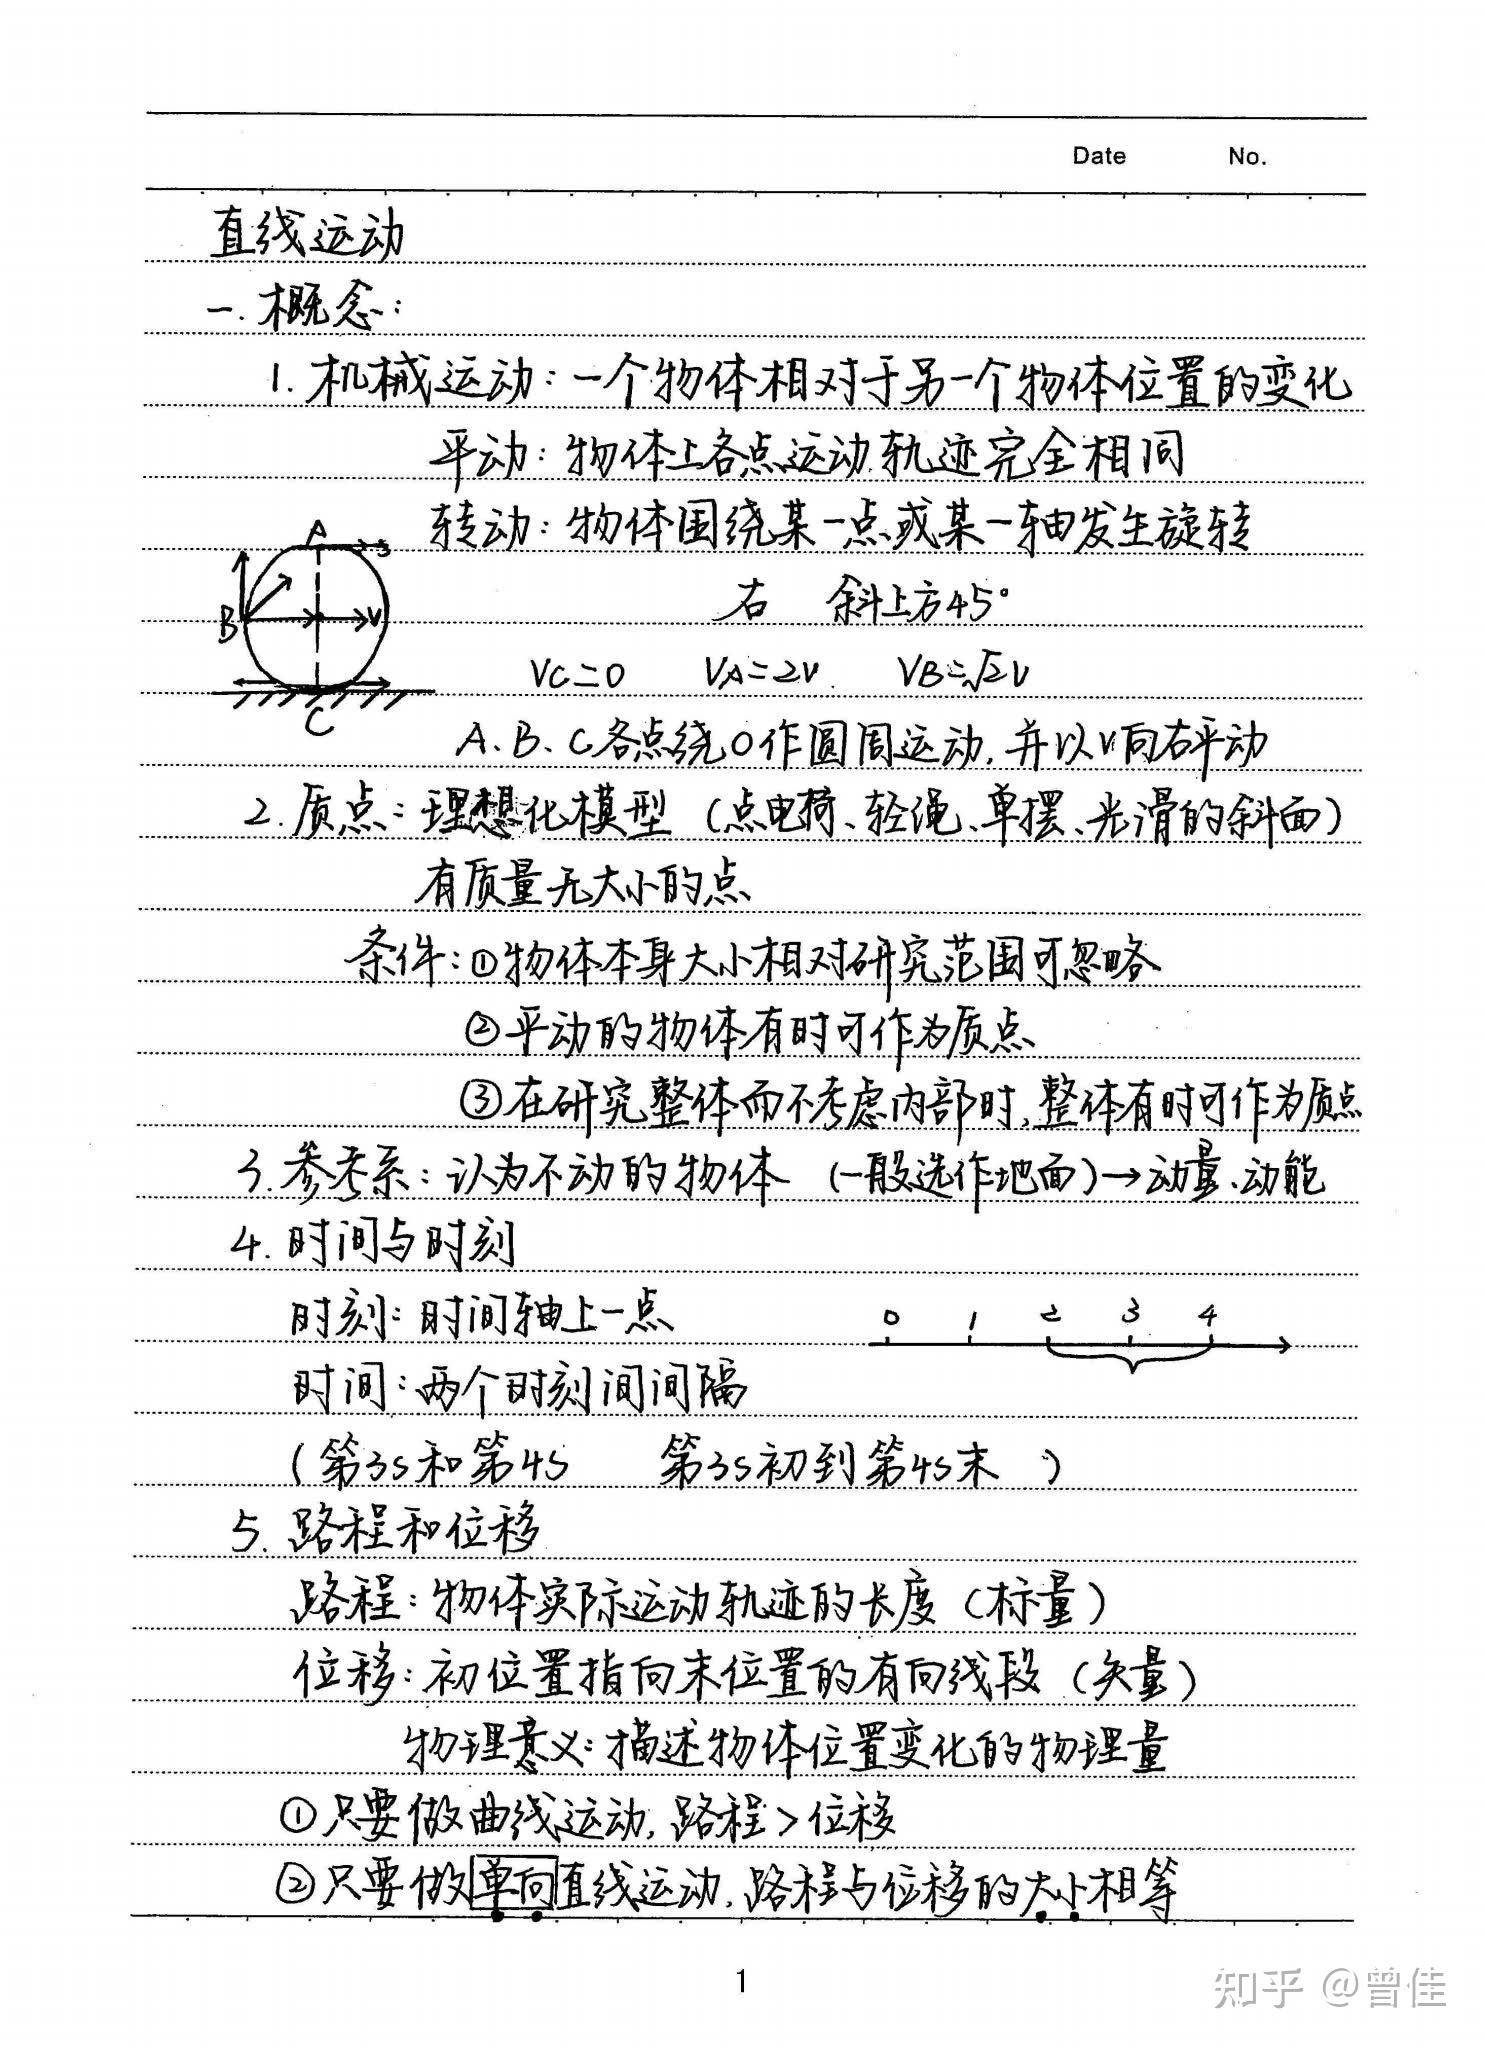 Date No.
直线运动
一. 概念:
1. 机械运动: 一个物体相对于另一个物体位置的变化
平动: 物体上各点运动轨迹完全相同
转动: 物体围绕某一点或某一轴发生旋转
A
B
V
C
右 斜上方45°
VC=0 VA=2V VB=√2V
A、B、C各点绕O作圆周运动, 并以V向右平动
2. 质点: 理想化模型 (点电荷、轻绳、单摆、光滑的斜面)
有质量无大小的点
条件: ①物体本身大小相对研究范围可忽略
②平动的物体有时可作为质点
③在研究整体而不考虑内部时, 整体有时可作为质点
3. 参考系: 认为不动的物体 (一般选作地面)→动量、动能
4. 时间与时刻
时刻: 时间轴上一点
0 1 2 3 4
时间: 两个时刻间间隔
(第3s和第4s 第3s初到第4s末 )
5. 路程和位移
路程: 物体实际运动轨迹的长度 (标量)
位移: 初位置指向末位置的有向线段 (矢量)
物理意义: 描述物体位置变化的物理量
①只要做曲线运动, 路程>位移
②只要做单向直线运动, 路程与位移的大小相等
1
知乎 @曾佳